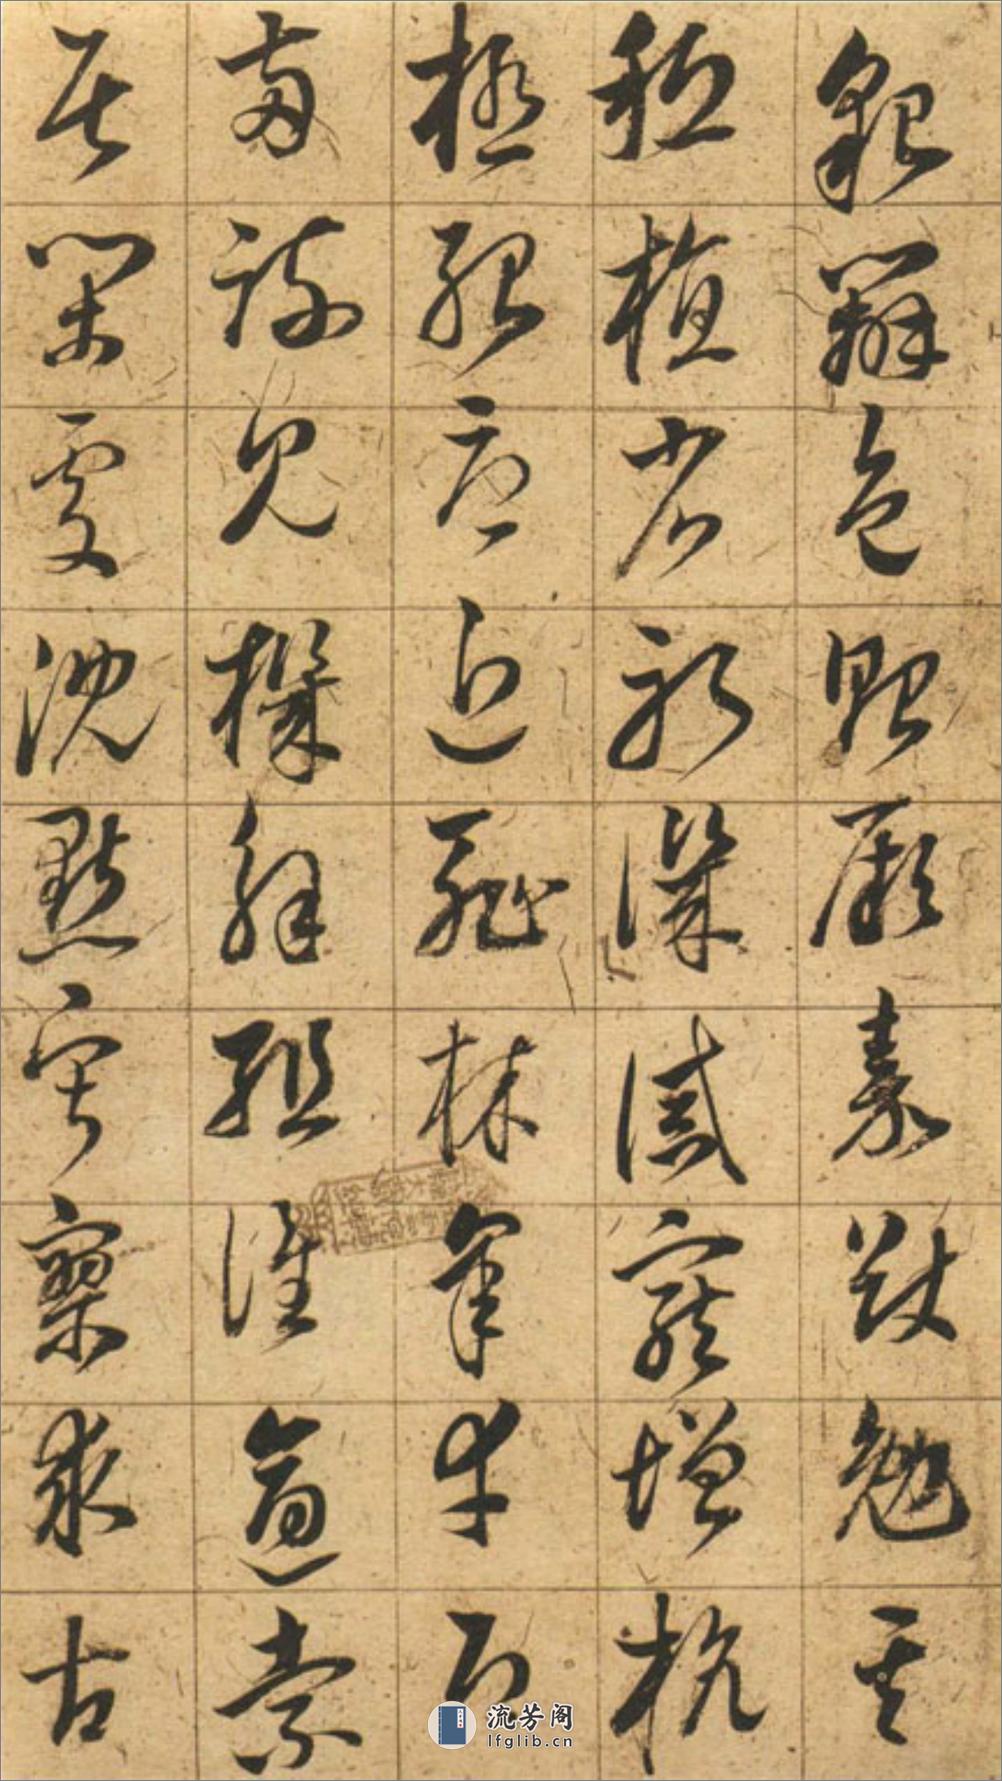 貌辨色貽厥嘉猷勉其
祗植省躬譏誡寵增抗
極殆辱近恥林皋幸即
兩疏見機解組誰逼索
居閑處沈默寂寥求古
流芳阁
lfglib.cn